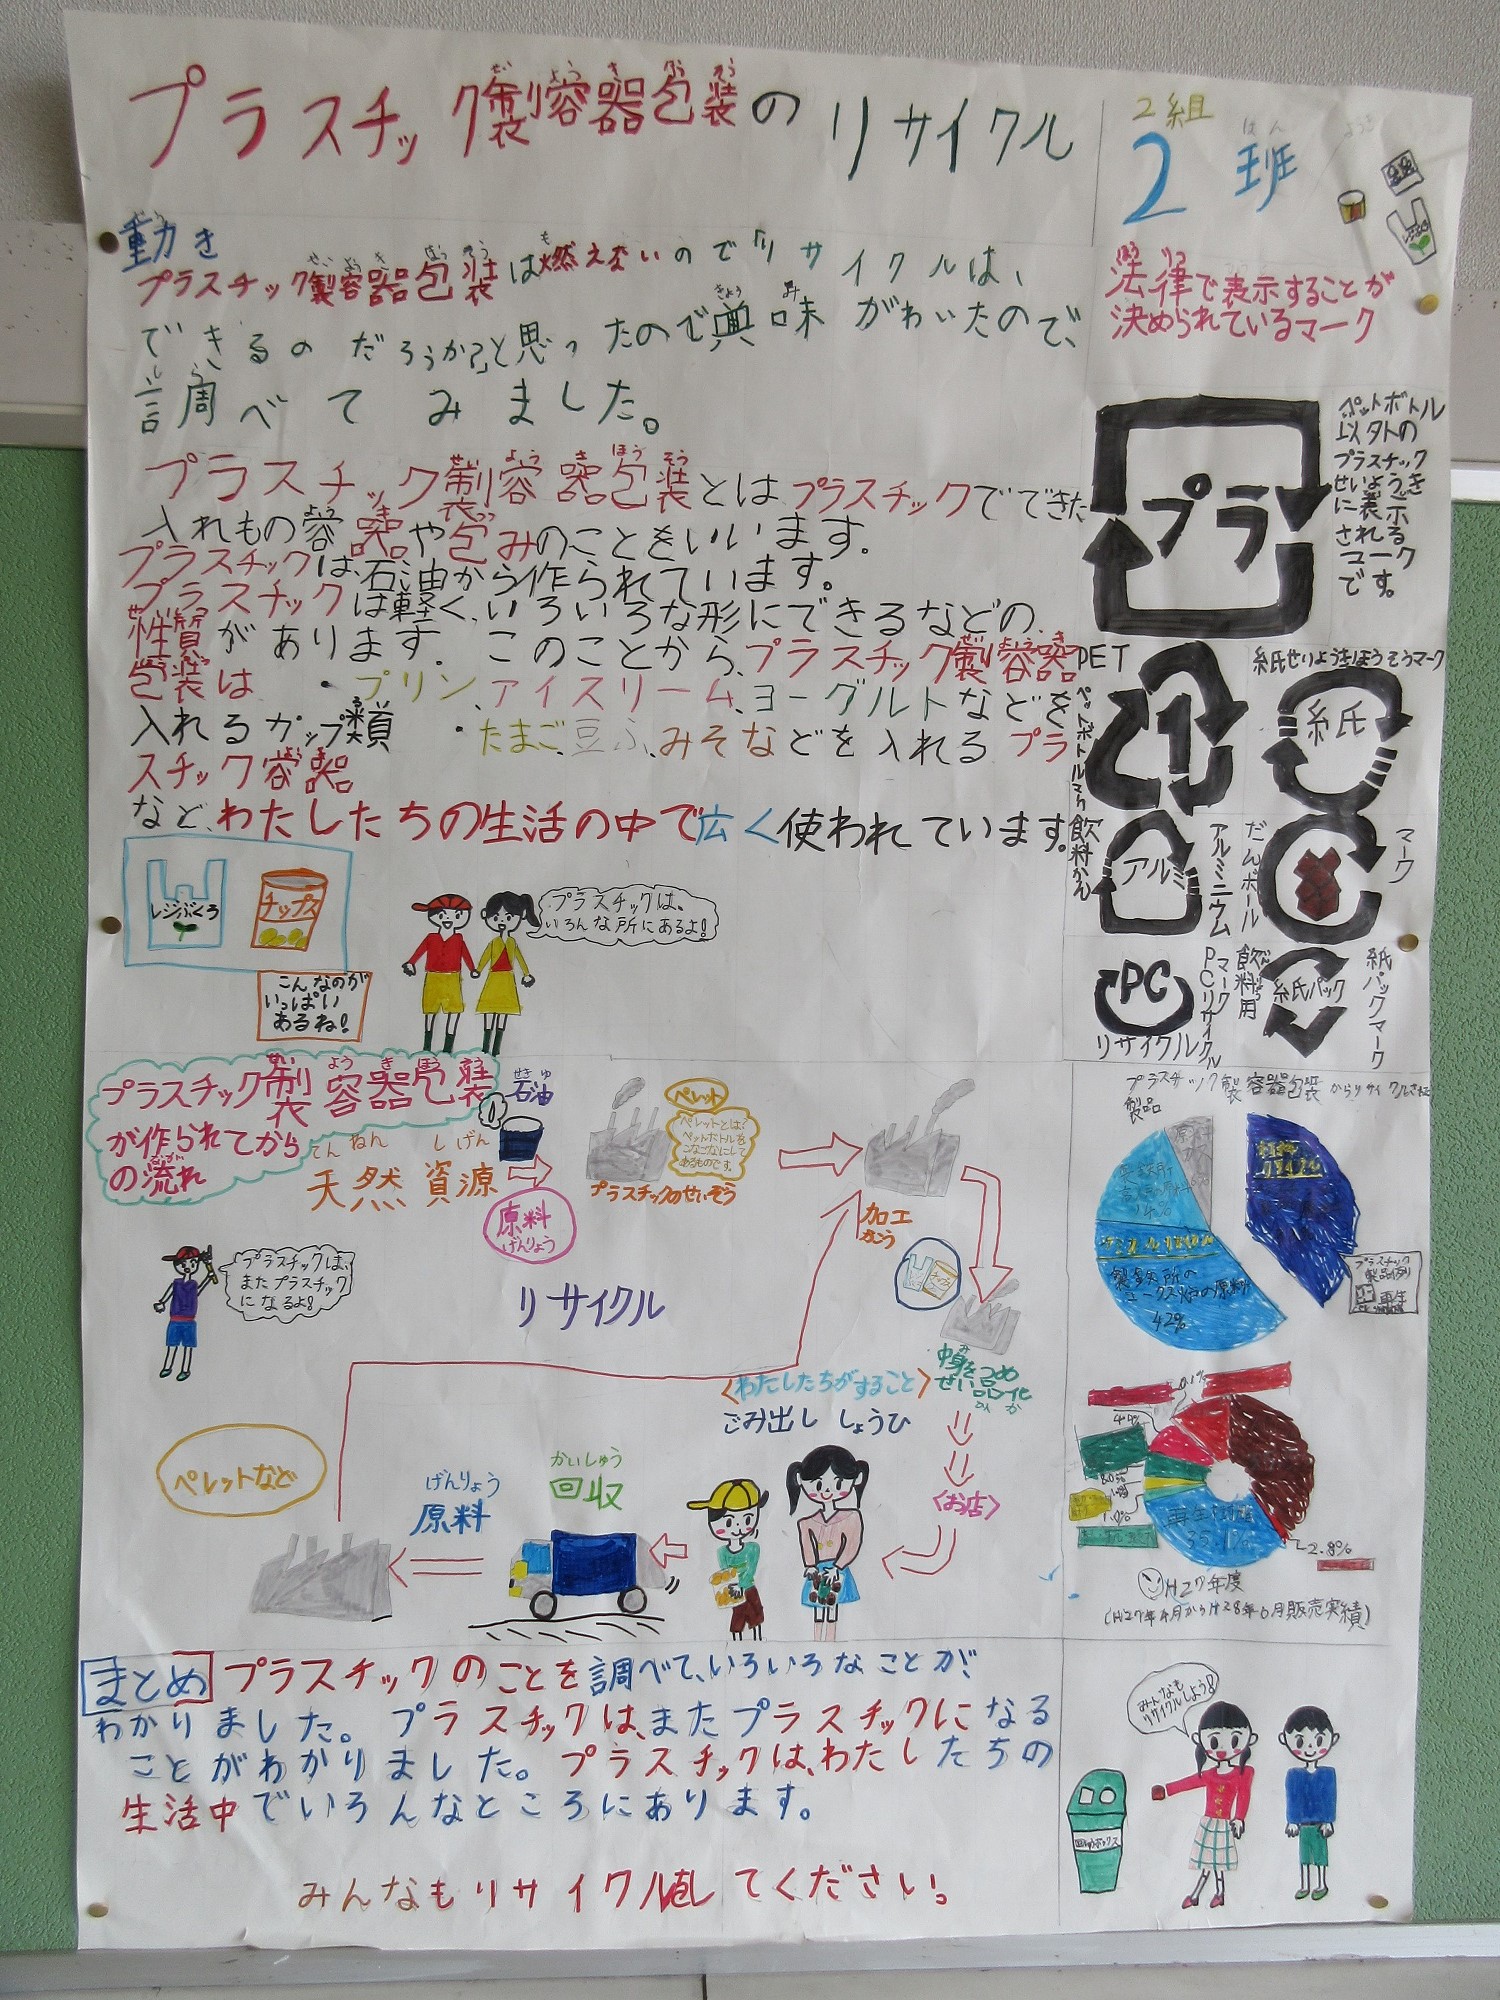 プラスチック製容器包装のリサイクル
せい よう き ほう そう
2組
2班
はん
動き
どう
プラスチック製容器包装は燃えないのでリサイクルは、
できるのだろうか?」と思ったので興味がわいたので、
調べてみました。
プラスチック製容器包装とはプラスチックでできた
入れもの容器や包みのことをいいます。
プラスチックは、石油から作られています。
プラスチックは軽く、いろいろな形にできるなどの
性質があります。このことから、プラスチック製容器
包装は ・プリン、アイスリーム、ヨーグルトなどを
入れるカップ類 ・たまご、豆ふ、みそなどを入れるプラ
スチック容器
など、わたしたちの生活の中で広く使われています。
レジぶくろ
チップス
こんなのが
いっぱい
あるね!
プラスチックは、
いろんな所にあるよ!
法律で表示することが
決められているマーク
プラ
ペットボトル
以外の
プラスチック
せいようき
に表示
される
マーク
です。
PET
ペットボトルマーク
1
紙せいようきほうそうマーク
紙
飲料かん
アルミ
アルミニウム
だんボール
マーク
PC
PCリサイクル
マーク
リサイクル
飲料用
紙パック
紙パックマーク
プラスチック製容器包装
が作られてから
の流れ
天然資源
てん ねん し げん
石油
せきゆ
原料
げんりょう
ペレット
ペレットとは?
ペットボトルを
こなごなにして
あるものです。
プラスチックのせいぞう
加工
かこう
中身をつめ
せい品化
ひん か
プラスチックは、
またプラスチック
になるよ!
リサイクル
〈わたしたちがすること〉
ごみ出し しょうひ
〈お店〉
かいしゅう
回収
げんりょう
原料
ペレットなど
プラスチック製容器包装からリサイクルされた
製品
製鉄所の
コークス炉の原料
42%
プラスチック
製品例
再生
4.7%
0.1%
8.0%
1.0%
2.8%
H27年度
(H27年4月からH28年6月販売実績)
まとめ プラスチックのことを調べて、いろいろなことが、
わかりました。プラスチックは、またプラスチックになる
ことがわかりました。プラスチックは、わたしたちの
生活中でいろんなところにあります。
みんなもリサイクルをしてください。
みんなも
リサイクルしよう!